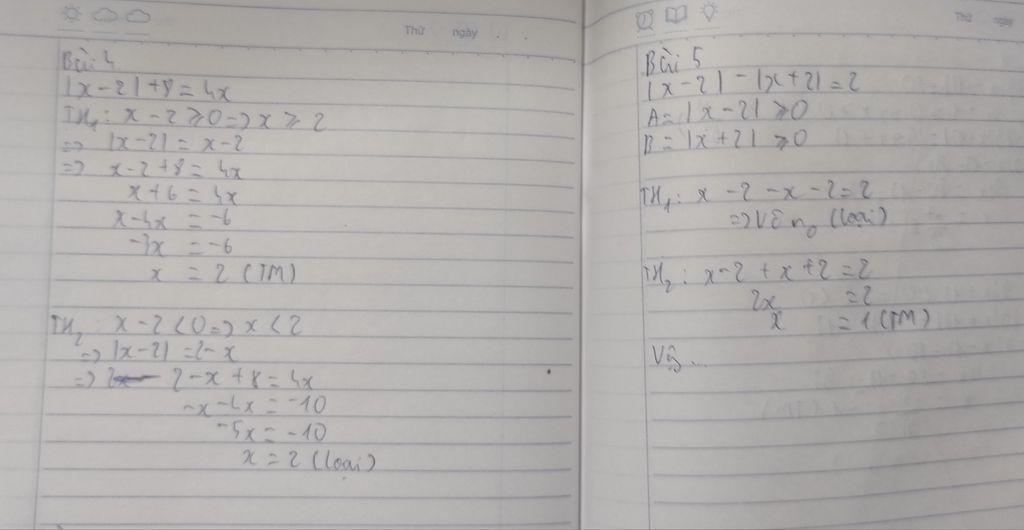 Thứ ngày
Bài 4
|x-2|+8=4x
TH₁: x-2≥0=>x≥2
=> |x-2|=x-2
=> x-2+8=4x
x+6=4x
x-4x=-6
-3x=-6
x=2(TM)
TH₂: x-2<0=>x<2
=> |x-2|=2-x
=> 2-x+8=4x
-x-4x=-10
-5x=-10
x=2(loại)
Thứ ngày
Bài 5
|x-2|-|x+2|=2
A=|x-2|≥0
B=|x+2|≥0
TH₁: x-2-x-2=2
=>Vô n₀ (loại)
TH₂: x-2+x+2=2
2x=2
x=1(TM)
Vậy...